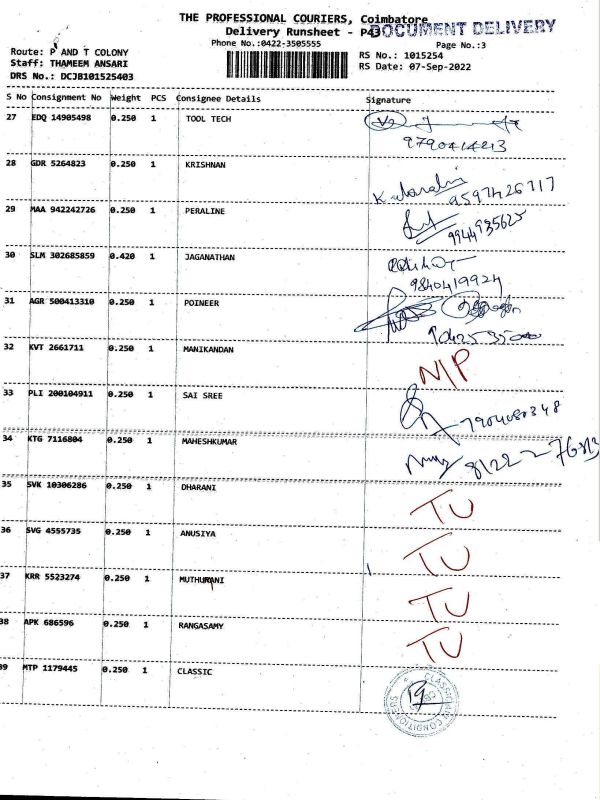 THE PROFESSIONAL COURIERS, Coimbatore
Delivery Runsheet - P43
DOCUMENT DELIVERY
Phone No.:0422-3505555
Page No.:3
Route: P AND T COLONY
RS No.: 1015254
Staff: THAMEEM ANSARI
RS Date: 07-Sep-2022
DRS No.: DCJB101525403
S No Consignment No Weight PCS Consignee Details Signature
27 EDQ 14905498 0.250 1 TOOL TECH
9790414213
28 GDR 5264823 0.250 1 KRISHNAN
9597426717
29 MAA 942242726 0.250 1 PERALINE
9944935625
30 SLM 302685859 0.420 1 JAGANATHAN
9840419924
31 AGR 500413310 0.250 1 POINEER
32 KVT 2661711 0.250 1 MANIKANDAN
N/P
33 PLI 200104911 0.250 1 SAI SREE
34 KTG 7116804 0.250 1 MAHESHKUMAR
35 SVK 10306286 0.250 1 DHARANI
TU
36 SVG 4555735 0.250 1 ANUSIYA
TU
37 KRR 5523274 0.250 1 MUTHURANI
TU
38 APK 686596 0.250 1 RANGASAMY
TU
39 MTP 1179445 0.250 1 CLASSIC